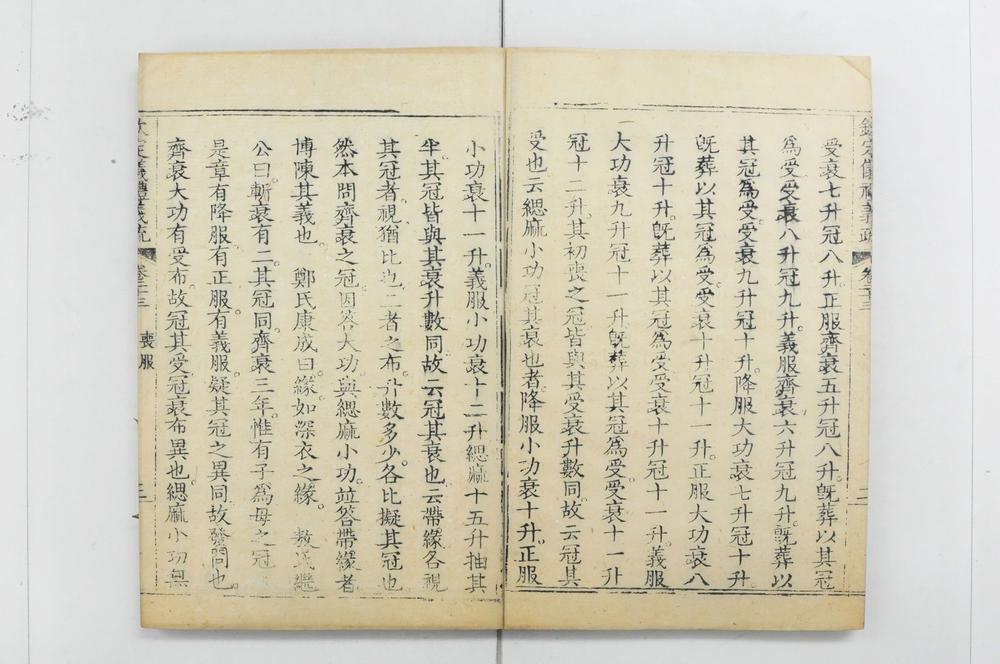 欽定儀禮義疏 卷二十三 二
受衰七升冠八升正服齊衰五升冠八升旣葬以其冠
爲受受衰八升冠九升義服齊衰六升冠九升旣葬以
其冠爲受受衰九升冠十升降服大功衰七升冠十升
旣葬以其冠爲受受衰十升冠十一升正服大功衰八
升冠十升旣葬以其冠爲受受衰十升冠十一升義服
大功衰九升冠十一升旣葬以其冠爲受受衰十一升
冠十二升其初喪之冠皆與其受衰升數同故云冠其
受也云緦麻小功冠其衰也者降服小功衰十升正服
小功衰十一升義服小功衰十二升緦麻十五升抽其
半其冠皆與其衰升數同故云冠其衰也云帶緣各視
其冠者視猶比也二者之布升數多少各比擬其冠也
然本問齊衰之冠因答大功與緦麻小功並答帶緣者
博陳其義也 鄭氏康成曰緣如深衣之緣 敖氏繼
公曰斬衰有二其冠同齊衰三年惟有子爲母之冠
是章有降服有正服有義服疑其冠之異同故發問也
齊衰大功有受布故冠其受冠衰布異也緦麻小功無
欽定儀禮義疏 卷二十三 喪服 三